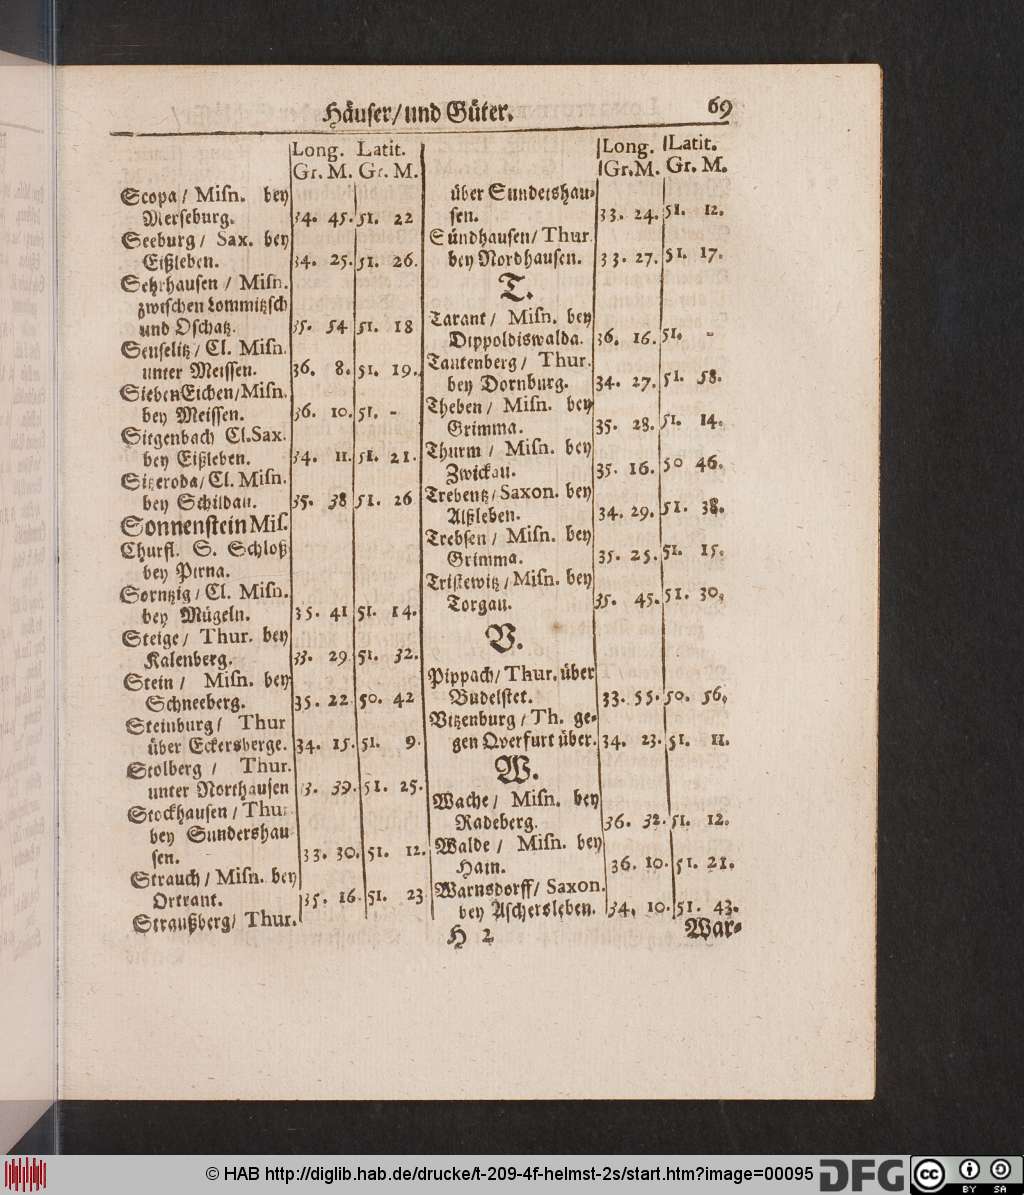 Häuser/und Güter. 69
Long. Latit.
Gr. M. Gr. M.
Scopa/ Misn. bey
Merseburg. 34. 45. 51. 22
Seeburg/ Sax. bey
Eißleben. 34. 25. 51. 26.
Sehrhausen / Misn.
zwischen Lommitzsch
und Oschatz. 35. 54 51. 18
Seuselitz/ Cl. Misn.
unter Meissen. 36. 8. 51. 19.
SiebenEichen/Misn.
bey Meissen. 36. 10. 51. -
Sitgenbach Cl.Sax.
bey Eißleben. 34. 11. 51. 21.
Sitzeroda/Cl. Misn.
bey Schildau. 35. 38 51. 26
Sonnenstein Mis.
Churfl. S. Schloß
bey Pirna.
Sorntzig/ Cl. Misn.
bey Mügeln. 35. 41 51. 14.
Steige/ Thur. bey
Kalenberg. 33. 29 51. 32.
Stein / Misn. bey
Schneeberg. 35. 22 50. 42
Steinburg/ Thur
über Eckersberge. 34. 15. 51. 9.
Stolberg / Thur.
unter Northausen 3. 39. 51. 25.
Stockhausen/ Thur
bey Sundershau
sen. 33. 30. 51. 12.
Strauch/ Misn. bey
Ortrant. 35. 16 51. 23
Straußberg/ Thur.
Long. Latit.
Gr. M. Gr. M.
über Sundershau-
sen. 33. 24. 51. 12.
Sündhausen/ Thur.
bey Nordhausen. 33. 27. 51. 17.
T.
Tarant/ Misn. bey
Dippoldiswalda. 36. 16. 51. -
Tautenberg/ Thur.
bey Dornburg. 34. 27. 51. 58.
Theben/ Misn. bey
Grimma. 35. 28. 51. 14.
Thurm / Misn. bey
Zwickau. 35. 16. 50 46.
Trebentz/Saxon. bey
Alßleben. 34. 29. 51. 38.
Trebsen / Misn. bey
Grimma. 35. 25. 51. 15.
Tristewitz/Misn. bey
Torgau. 35. 45. 51. 30.
V.
Pippach/Thur. über
Budelstet. 33. 55. 50. 56.
Vitzenburg/Th. ge-
gen Qverfurt über. 34. 23. 51. 11.
W.
Wache/ Misn. bey
Radeberg. 36. 32. 51. 12.
Walde / Misn. bey
Hain. 36. 10. 51. 21.
Warnsdorff/ Saxon.
bey Aschersleben. 34. 10. 51. 43.
H 2 War-
© HAB http://diglib.hab.de/drucke/t-209-4f-helmst-2s/start.htm?image=00095 DFG cc BY SA